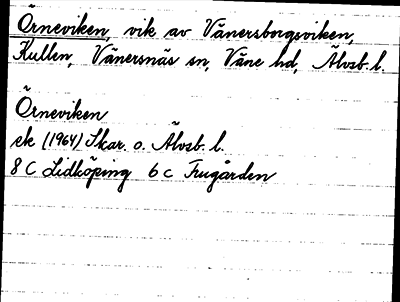 Örneviken, vik av Vänersborgsviken,
Kullen, Vänersnäs sn, Väne hd, Älvsb. l.
Örneviken
ek (1964) Skar. o. Älvsb. l.
8 C Lidköping 6 c Frugården